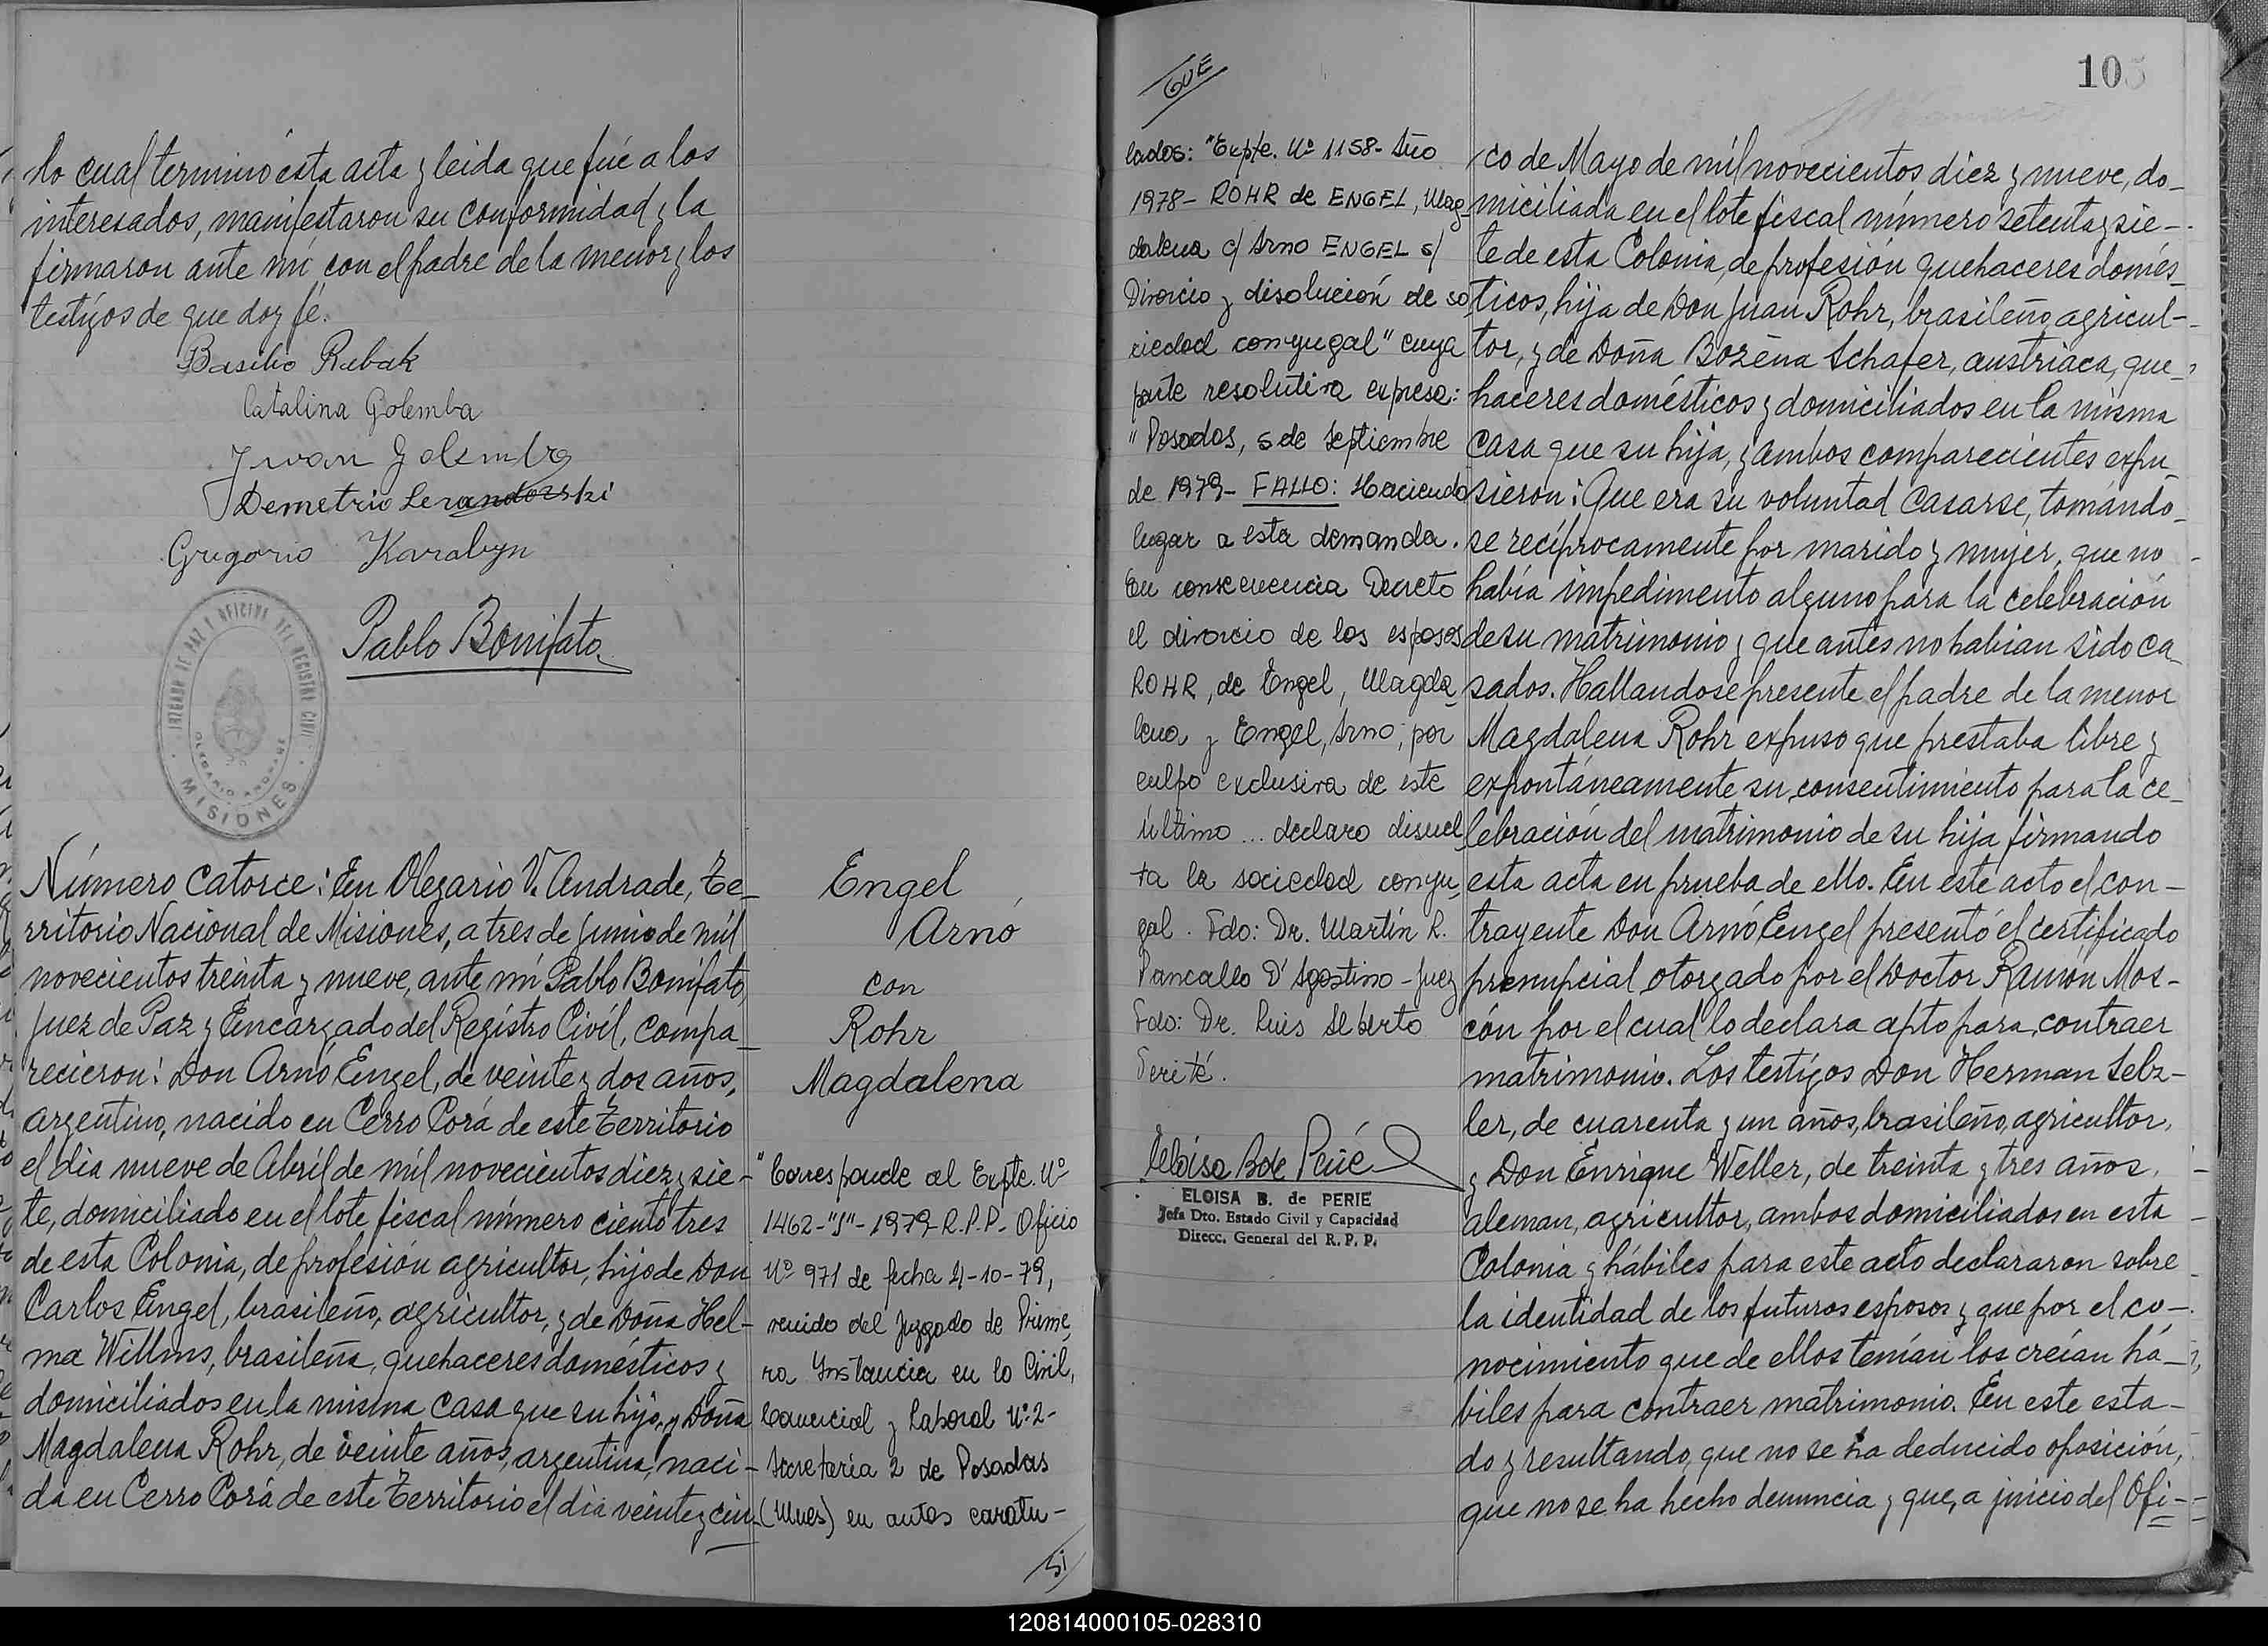 lo cual terminó esta acta y leida que fué a los
interesados, manifestaron su conformidad y la
firmaron ante mí con el padre de la menor y los
testigos de que doy fé.
Basilio Rubak
Catalina Golemba
Iwan Golemba
Demetrio
Gregorio Karabyn
Pablo Bonifato
JUZGADO DE PAZ Y OFICINA DEL REGISTRO CIVIL
OLEGARIO ANDRADE
MISIONES
Número catorce: En Olegario V. Andrade, Te-
rritorio Nacional de Misiones, a tres de Junio de mil
novecientos treinta y nueve, ante mí Pablo Bonifato,
Juez de Paz y Encargado del Registro Civil, compa-
recieron: Don Arnó Engel, de veinte y dos años,
argentino, nacido en Cerro Corá de este Territorio
el dia nueve de Abril de mil novecientos diez y sie-
te, domiciliado en el lote fiscal número ciento tres
de esta Colonia, de profesión agricultor, hijo de Don
Carlos Engel, brasileño, agricultor, y de Doña Hel-
ma Willms, brasileña, quehaceres domésticos y
domiciliados en la misma casa que su hijo, y Doña
Magdalena Rohr, de veinte años, argentina, naci-
da en Cerro Corá de este Territorio el dia veinte y cin-
Engel
Arnó
con
Rohr
Magdalena
"Corresponde al Expte. Nº
1462-"J"-1979-R.P.P.- Oficio
Nº 971 de fecha 4-10-79,
venido del Juzgado de Prime
ra Instancia en lo Civil,
Comercial y Laboral Nº 2-
Secretaría 2 de Posadas
(Mnes) en autos caratu-
si
QUE
lados: "Expte. Nº 1158- Año
1978- ROHR de ENGEL, Mag-
dalena c/ Arno ENGEL s/
Divorcio y disolución de so-
ciedad conyugal" cuya
parte resolutiva expresa:
"Posadas, 5 de Septiembre
de 1979- FALLO: Haciendo
lugar a esta demanda.
En consecuencia Decreto
el divorcio de los esposos
ROHR, de Engel, Magda-
lena y Engel, Arno, por
culpa exclusiva de este
último ... declaro disuel-
ta la sociedad conyu-
gal. Fdo: Dr. Martín R.
Pancallo D'Agostino - Juez
Fdo: Dr. Luis Alberto
Perité.
Eloisa B de Perié
ELOISA B. de PERIE
Jefa Dto. Estado Civil y Capacidad
Direcc. General del R. P. P.
105
co de Mayo de mil novecientos diez y nueve, do-
miciliada en el lote fiscal número setenta y sie-
te de esta Colonia, de profesión quehaceres domés-
ticos, hija de Don Juan Rohr, brasileño, agricul-
tor, y de Doña Bozéna Schafer, austriaca, que-
haceres domésticos y domiciliados en la misma
casa que su hija, y ambos comparecientes expu-
sieron: Que era su voluntad casarse, tomándo-
se recíprocamente por marido y mujer, que no
había impedimento alguno para la celebración
de su matrimonio y que antes no habian sido ca-
sados. Hallandose presente el padre de la menor
Magdalena Rohr expuso que prestaba libre y
expontáneamente su consentimiento para la ce-
lebración del matrimonio de su hija firmando
esta acta en prueba de ello. En este acto el con-
trayente Don Arnó Engel presentó el certificado
prenupcial otorgado por el Doctor Ramón Mos-
cón por el cual lo declara apto para contraer
matrimonio. Los testigos Don Herman Selz-
ler, de cuarenta y un años, brasileño, agricultor,
y Don Enrique Weller, de treinta y tres años,
aleman, agricultor, ambos domiciliados en esta
Colonia y hábiles para este acto declararon sobre
la identidad de los futuros esposos y que por el co-
nocimiento que de ellos tenían los creían há-
biles para contraer matrimonio. En este esta-
do y resultando, que no se ha deducido oposición,
que no se ha hecho denuncia y que, a juicio del Ofi-
120814000105-028310